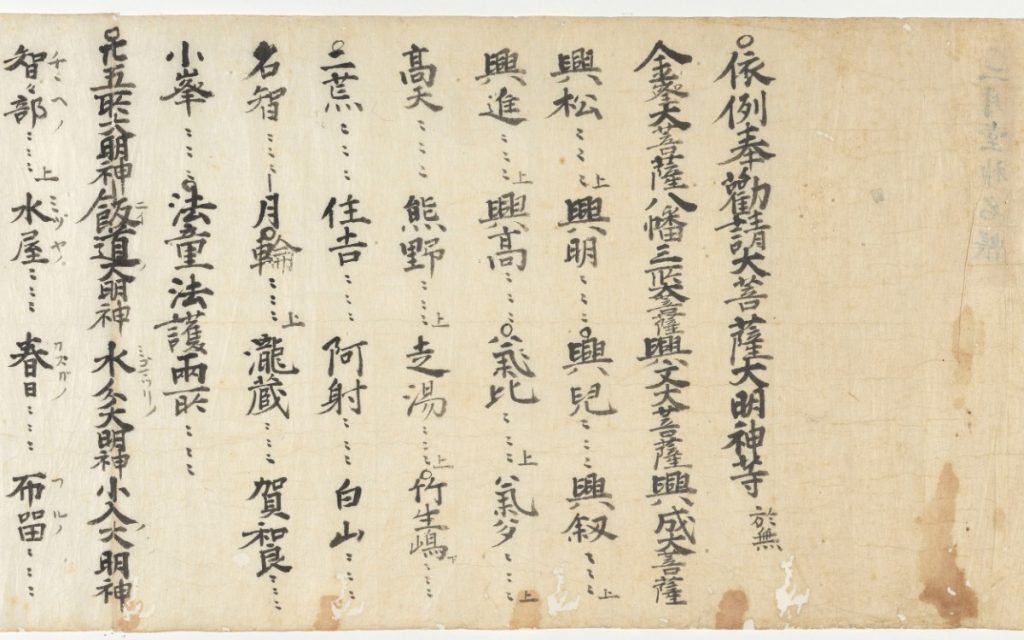 二月堂神名帳
依例奉勸請大菩薩大明神等 於無
金峯大菩薩八幡三所大菩薩興文大菩薩興成大菩薩
興松〻〻〻上興明〻〻〻興兒〻〻〻興叙〻〻〻上
興進〻〻〻上興高〻〻〻氣比〻〻〻上氣多〻〻〻上
高天〻〻〻熊野〻〻〻上走湯〻〻〻上竹生嶋〻〻〻下
二荒〻〻〻住吉〻〻〻阿射〻〻〻白山〻〻〻
名智〻〻〻月輪〻〻〻上瀧蔵〻〻〻賀和良〻〻〻
小峯〻〻〻法童法護兩所〻〻〻
廿五所大明神飯道大明神水分大明神小入大明神
智〻部〻〻〻上水屋〻〻〻春日〻〻〻布留〻〻〻